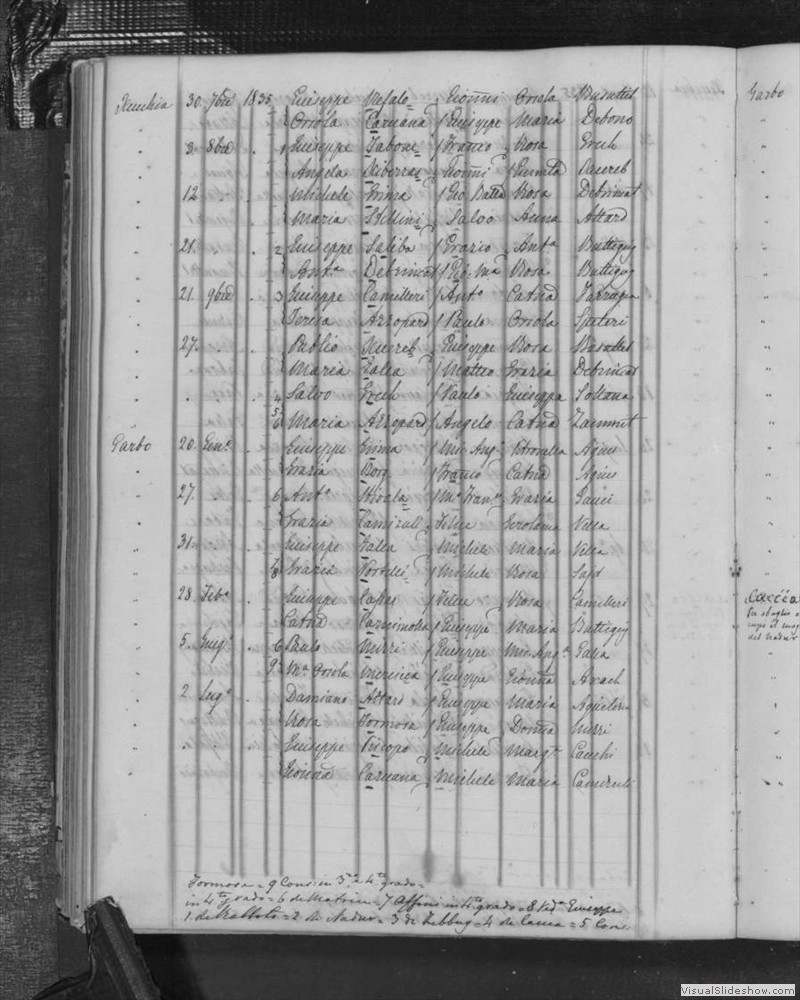 30 7bre 1835 Giuseppe Refalo Gioanni Orsola Busuttil
Orsola Caruana Giuseppe Maria Debono
3 8bre 1 Giuseppe Tabone Franco Rosa Grech
Angela Xiberras Gioanni Xuereb
12 Michele Grima Gio Batta Rosa Debrincat
Maria Stellini Salvo Anna Attard
21 2 Giuseppe Saliba Grazio Anta Buttigieg
Anta Debrincat Gio Ma Rosa Buttigieg
21 9bre 3 Giuseppe Camilleri Anto Catna Farrugia
Teresa Azzopard Paulo Orsola Spiteri
27 Publio Xuereb Giuseppe Rosa Busuttil
Maria Galea Matteo Grazia Debrincat
4 Salvo Grech Paulo Giuseppa Soltana
5 6 Maria Azzopard Angelo Catna Zammit
Garbo 20 Genn Giuseppe Grima Mic Ang Petronilla Agius
Grazia Borg Franco Catna Agius
27 6 Anta Grazia Gauci
Grazia Felice Gerolama Vella
31 Giuseppe Galea Michele Maria Vella
8 Grazia Portelli Michele Rosa Said
28 Feb Giuseppe Felice Rosa Camilleri
Catna Giuseppe Maria Buttigieg
5 Giug 6 Paulo Mizzi Giuseppe Mic Anga Galea
9 Ma Orsola Mercieca Giuseppe Gionna Axach
2 Lugo Damiano Attard Giuseppe Maria Aquilina
Rosa Formosa Giuseppe Domca Mizzi
Giuseppe Piscopo Michele Margta Cauchi
Gionna Caruana Michele Maria
Formosa = 9 Cons: in 3o a 4to grado =
in 4to grado = 6 de Matrice = 7 Affini in 4to grado = 8 Giuseppe
1 de Rabbato = 2 de Nadur = 3 de Zebbug = 4 de Caccia = 5 Cons:
Garbo
Caccia
del Nadur
VisualSlideshow.com